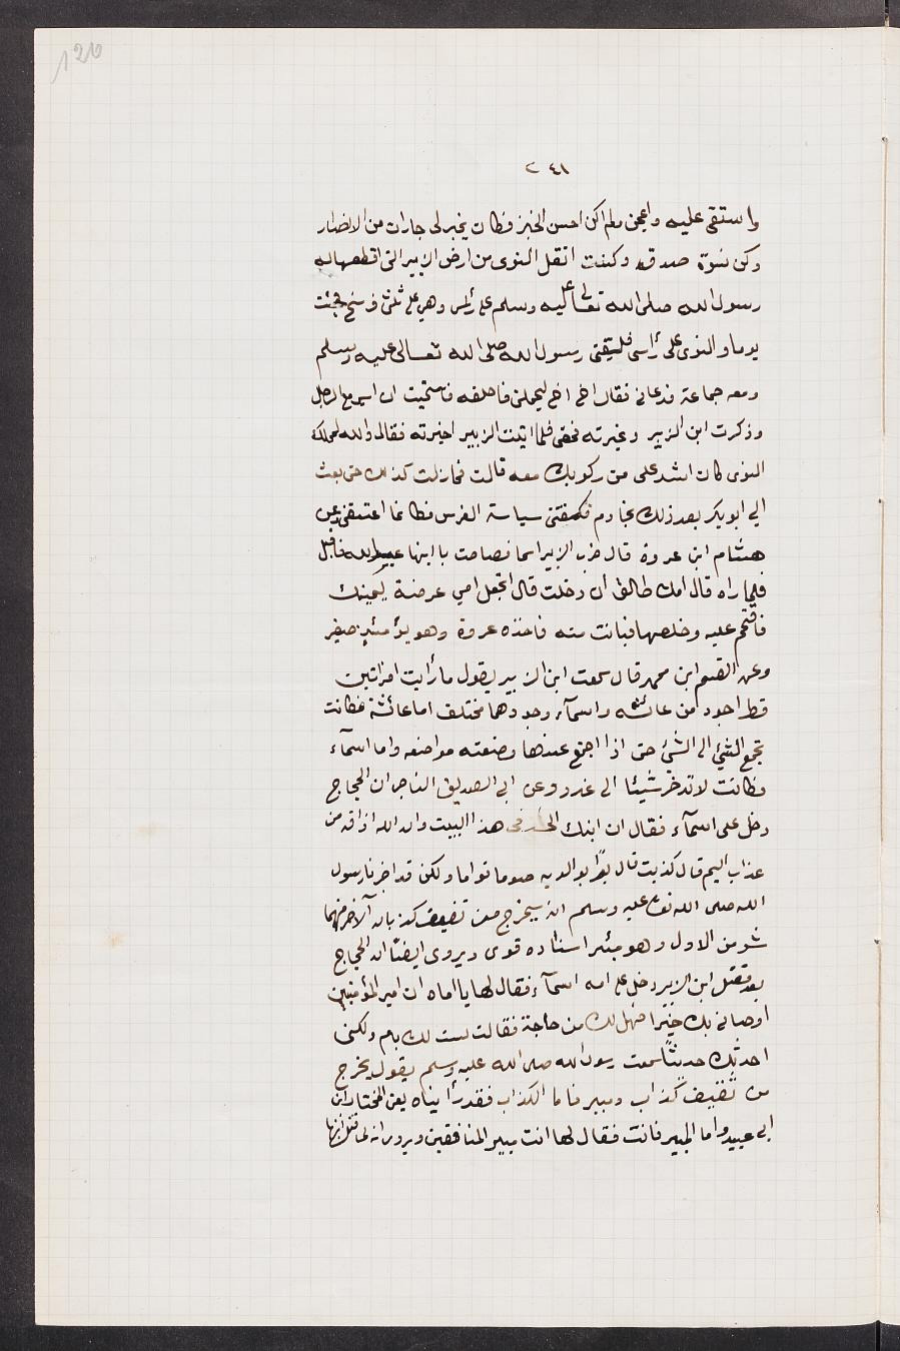 126
٢٤١
واستقى عليه واعجن ولم اكن احسن الخبز فكان يخبز لى جارات من الانصار
وكن نسوة صدق وكنت انقل النوى من ارض الزبير التى اقطعها له
رسول الله صلى الله تعالى عليه وسلم على رأسى وهي على ثلثى فرسخ فجئت
يوما والنوى على رأسى فلقيتى رسول الله صلى الله تعالى عليه وسلم
ومعه جماعة فدعانى فقال اخ اخ ليحملنى خلفه فاستحيت ان اسير مع الرجل
وذكرت ابن الزبير وغيرته فلما اتيت الزبير اخبرته فقال والله لحملك
النوى كان اشد على من ركوبك معه قالت فمازلت كذلك حتى بعث
الي ابو بكر بعد ذلك بخادم فكفتنى سياسة الفرس فكانما اعتقنى وعن
هشام ابن عروة قال ضرب الزبير اسما فصاحت بابنها عبد الله فاقبل
فلما راه قال امك طالق ان دخلت قال اتجعل امي عرضة ليمينك
فاقتحم عليه وخلصها فبانت منه فاخذه عروة وهو يومئذ صغير
وعن القسم ابن محمد قال سمعت ابن الزبير يقول ما رأيت امرأتين
قط اجود من عائشه واسمآء وجودهما مختلف اما عائشة فكانت
تجمع الشئ الى الشئ حتى اذا اجتمع عندها وضعته مواضعه واما اسمآء
فكانت لا تدخر شيئا الى غد وعن ابى الصديق الناجى ان الحجاج
دخل على اسمآء فقال ان ابنك الحد فى هذا البيت وان الله اذاقه من
عذاب اليم قال كذبت قال برًا بوالديه صوما قواما ولكن قد اخبرنا رسول
الله صلى الله عليه وسلم انه سيخرج من ثقيف كذبان الآخر منهما
شر من الاول وهو مبير اسناده قوى ويروى ايضًا ان الحجاج
بعد قتل ابن الزبير دخل على امه اسمآء فقال لها يا اماه ان امير المؤمنين
اوصانى بك خيرا فهل لك من حاجة فقالت لست لك بام ولكنى
احدثك حديثًا سمعت رسول الله صلى الله عليه وسلم يقول يخرج
من ثقيف كذاب ومبير فاما الكذاب فقد رأيناه يعنى المختار ابن
ابى عبيد واما المبير فانت فقال لها انت مبير المنافقين ويروى انه لما قتل ابنها